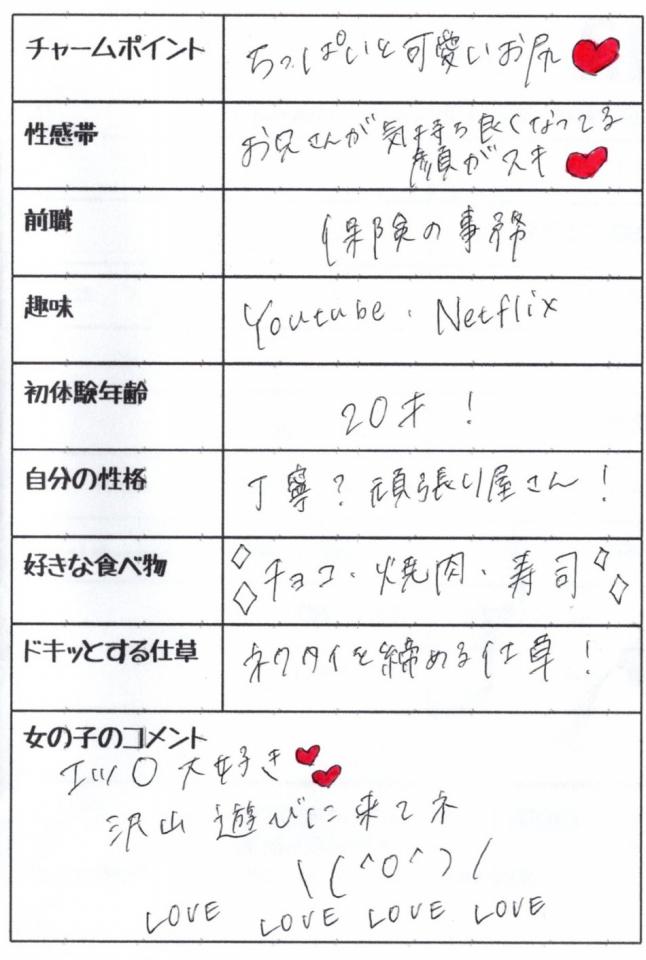 チャームポイント
ちっぱいと可愛いお尻
性感帯
お兄さんが気持ち良くなってる
顔がスキ
前職
保険の事務
趣味
Youtube・Netflix
初体験年齢
20才！
自分の性格
丁寧？頑張り屋さん！
好きな食べ物
チョコ・焼肉・寿司
ドキッとする仕草
ネクタイを締める仕草！
女の子のコメント
エッ〇大好き
沢山遊びに来てネ
\(^O^)/
LOVE LOVE LOVE LOVE